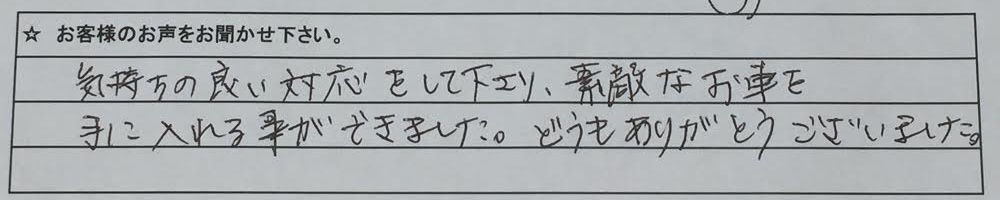 ☆ お客様のお声をお聞かせ下さい。
気持ちの良い対応をして下さり、素敵なお車を
手に入れる事ができました。どうもありがとうございました。